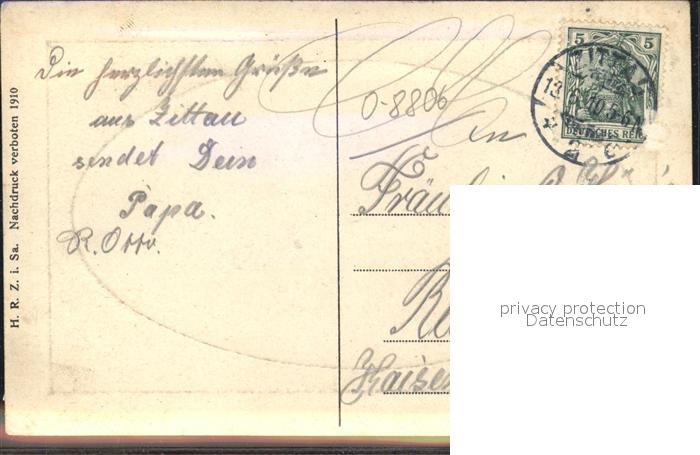 H. R. Z. i. Sa. Nachdruck verboten 1910
Die herzlichsten Grüße
aus Zittau
sendet Dein
Papa.
R. Otto.
O-8806
5 5
DEUTSCHES REICH
ZITTAU
10.5-6N
2 c
An
Fräulein
privacy protection
Datenschutz